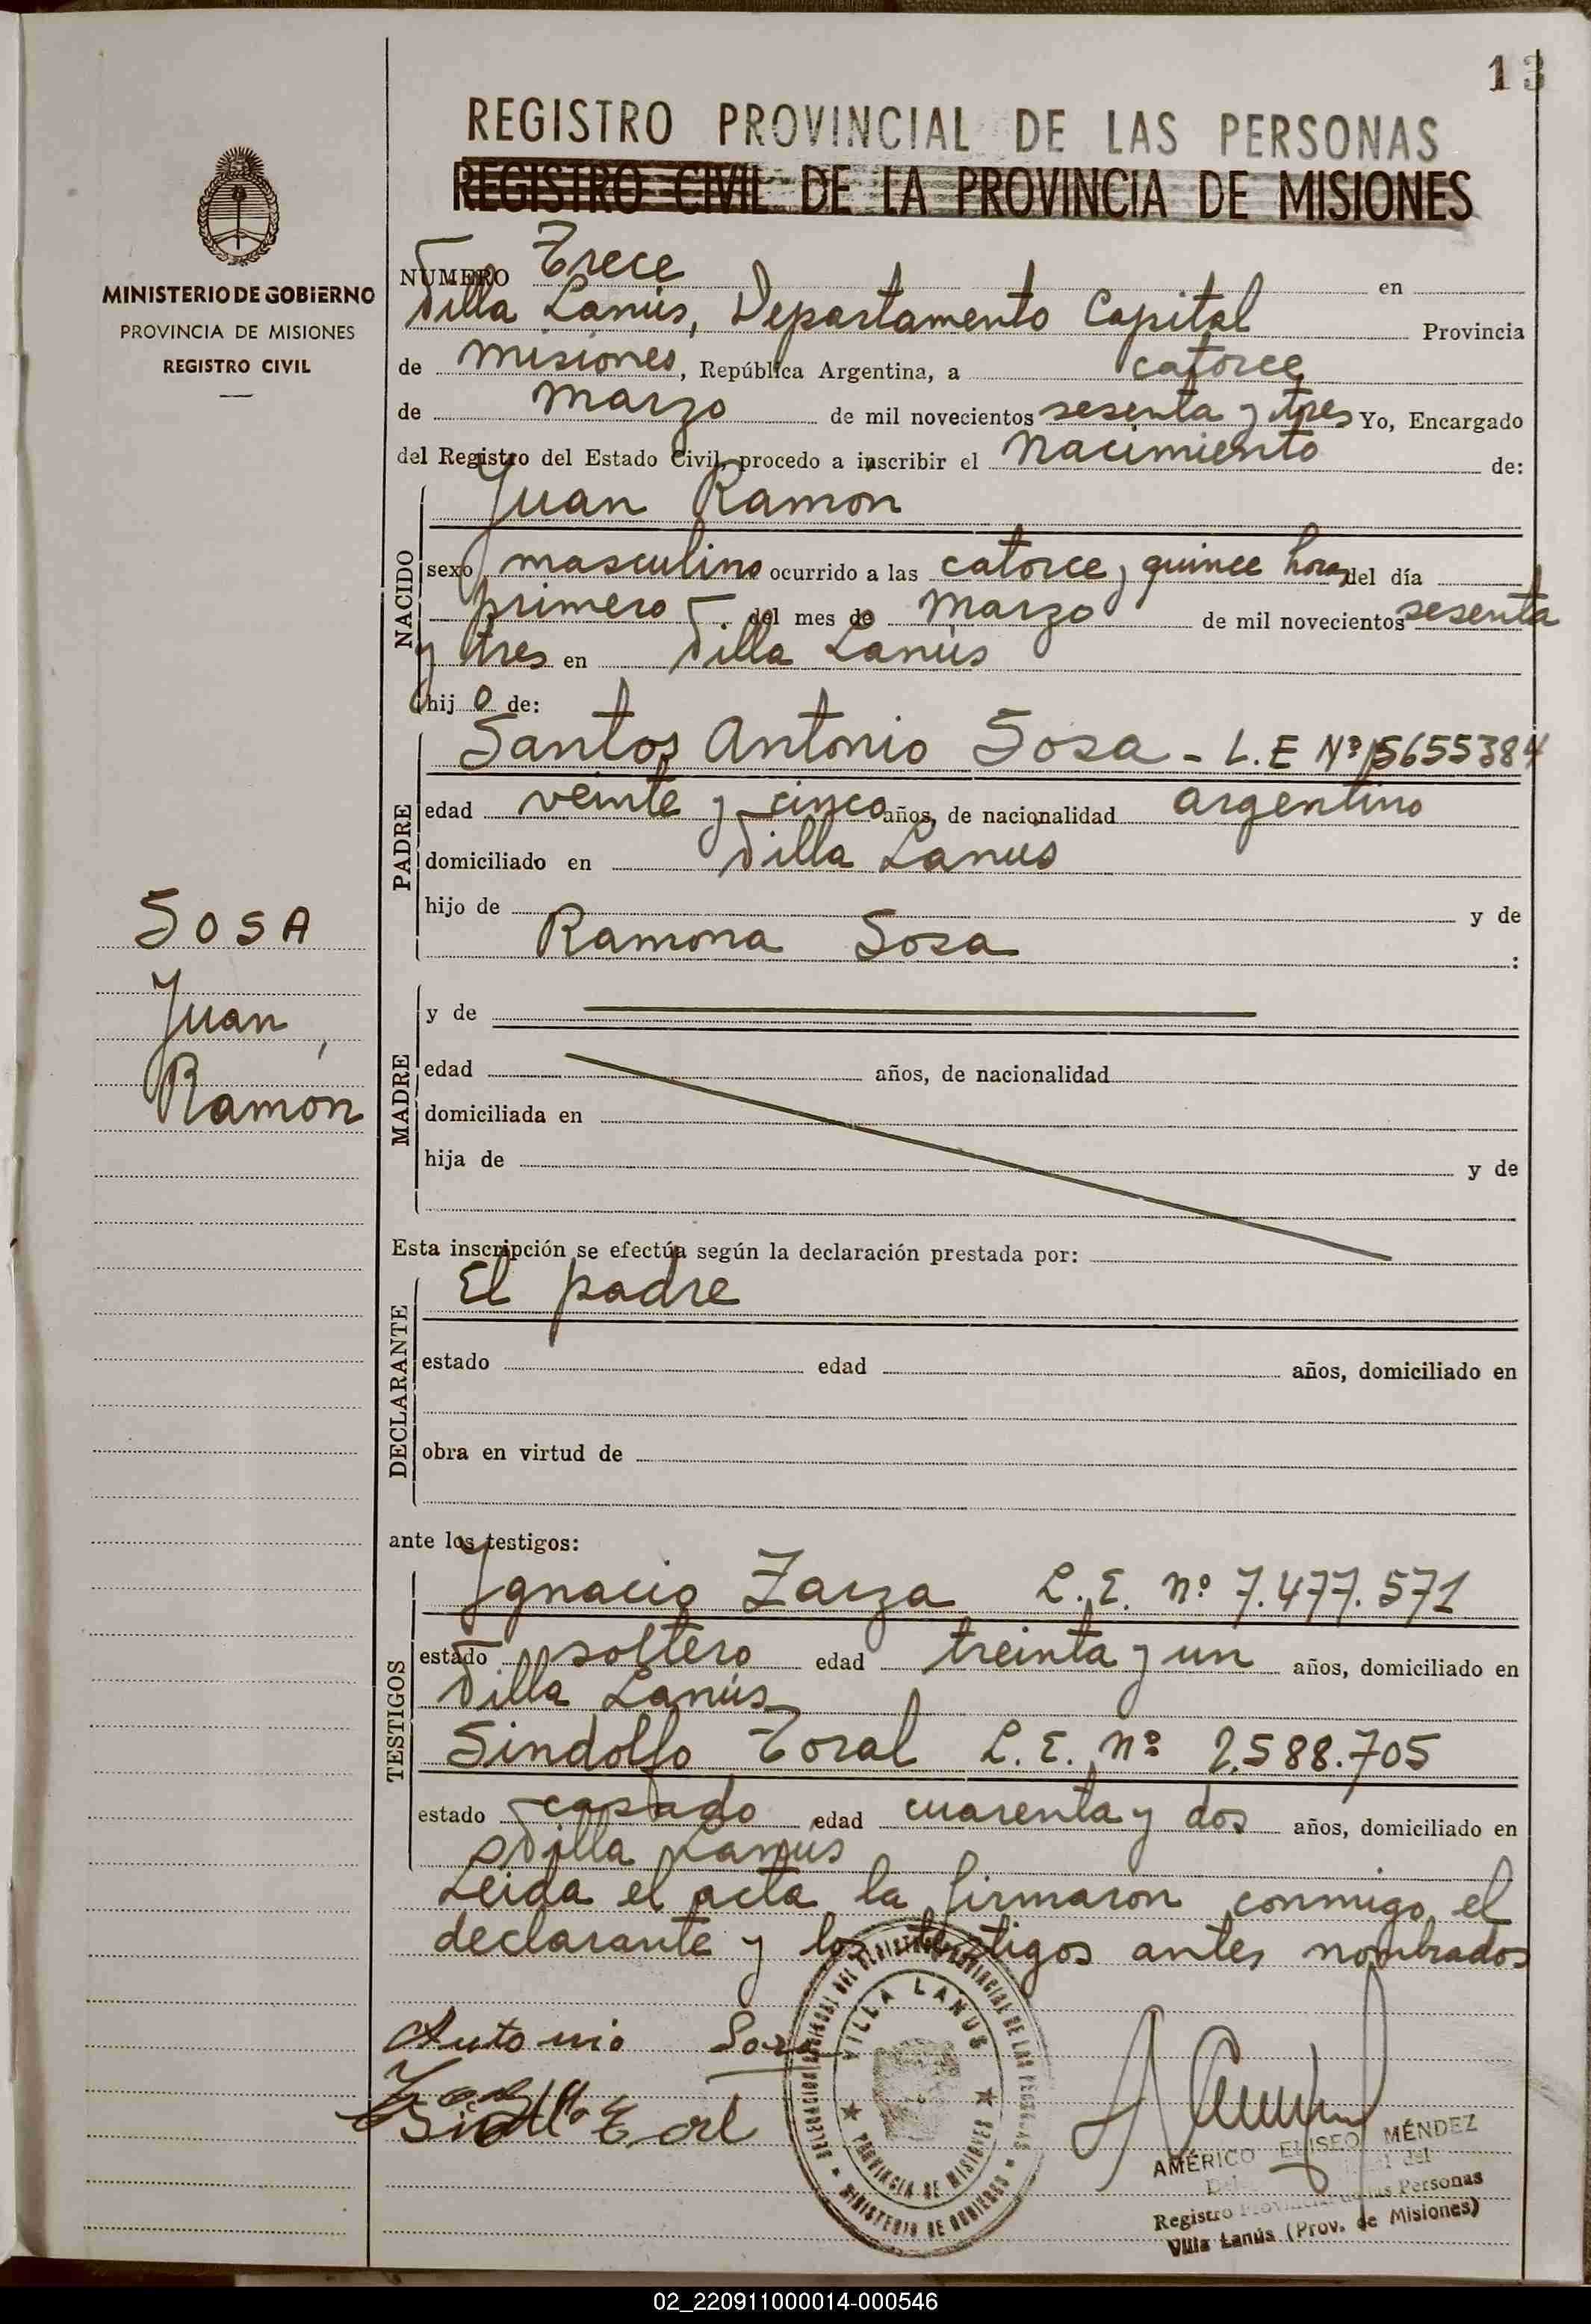 13
REGISTRO PROVINCIAL DE LAS PERSONAS
REGISTRO CIVIL DE LA PROVINCIA DE MISIONES
MINISTERIO DE GOBIERNO
PROVINCIA DE MISIONES
REGISTRO CIVIL
SOSA
Juan
Ramón
NUMERO Trece en
Villa Lanús, Departamento Capital Provincia
de Misiones, República Argentina, a catorce
de Marzo de mil novecientos sesenta y tres Yo, Encargado
del Registro del Estado Civil, procedo a inscribir el Nacimiento de:
NACIDO
Juan Ramon
sexo masculino ocurrido a las catorce y quince horas del día
primero del mes de Marzo de mil novecientos sesenta
y tres en Villa Lanús
hijo de:
PADRE
Santos Antonio Sosa - L.E Nº 5655384
edad veinte y cinco años, de nacionalidad argentino
domiciliado en Villa Lanus
hijo de y de
Ramona Sosa :
MADRE
y de
edad años, de nacionalidad
domiciliada en
hija de y de
Esta inscripción se efectúa según la declaración prestada por:
DECLARANTE
El padre
estado edad años, domiciliado en
obra en virtud de
ante los testigos:
TESTIGOS
Ignacio Zarza L.E. nº 7.477.571
estado soltero edad treinta y un años, domiciliado en
Villa Lanús
Sindolfo Toral L.E. nº 2.588.705
estado casado edad cuarenta y dos años, domiciliado en
Villa Lanús
Leida el acta la firmaron conmigo el
declarante y los testigos antes nombrados
Antonio Sosa
VILLA LANUS
PROVINCIA DE MISIONES
MINISTERIO DE GOBIERNO
AMÉRICO ELISEO MÉNDEZ
Registro Provincial de las Personas
Villa Lanús (Prov. de Misiones)
02_220911000014-000546